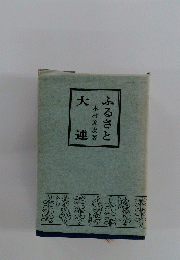 ふるさと
大連